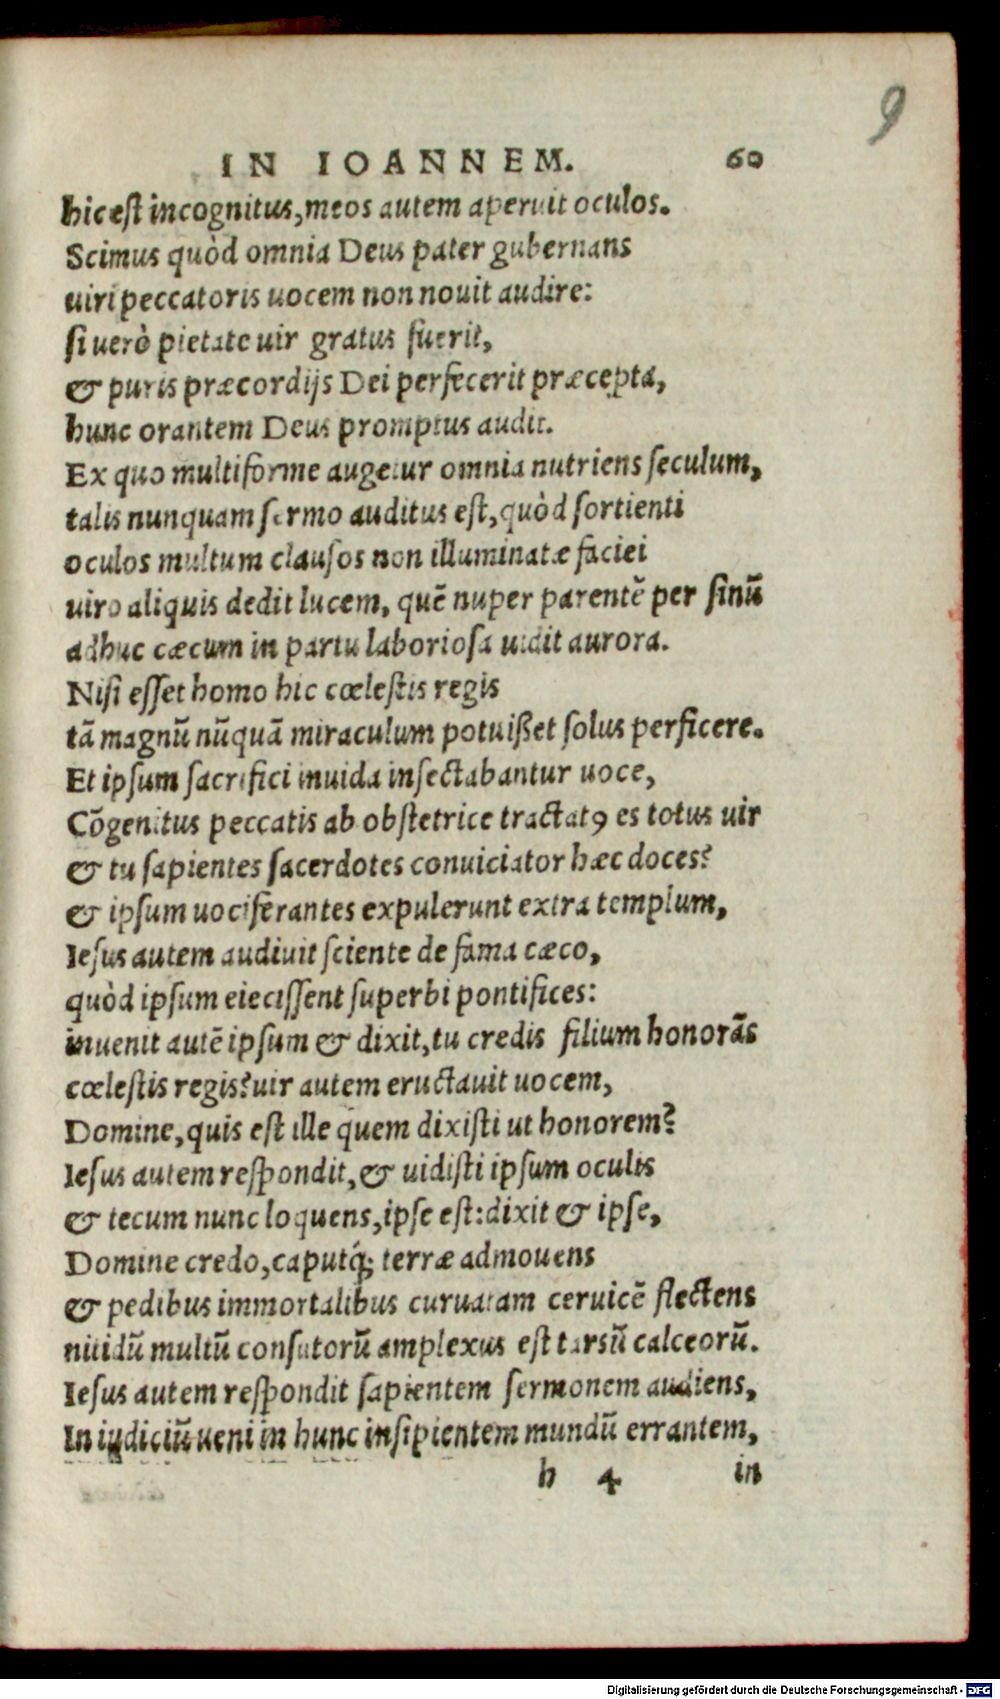 9
IN IOANNEM. 60
hic est incognitus, meos autem aperuit oculos.
Scimus quòd omnia Deus pater gubernans
uiri peccatoris uocem non nouit audire:
si uerò pietate uir gratus fuerit,
& puris præcordijs Dei perfecerit præcepta,
hunc orantem Deus promptus audit.
Ex quo multiforme augetur omnia nutriens seculum,
talis nunquam sermo auditus est, quòd sortienti
oculos multum clausos non illuminatæ faciei
uiro aliquis dedit lucem, quẽ nuper parentẽ per sinũ
adhuc cæcum in partu laboriosa uidit aurora.
Nisi esset homo hic cœlestis regis
tã magnũ nũquã miraculum potuißet solus perficere.
Et ipsum sacrifici inuida insectabantur uoce,
Cõgenitus peccatis ab obstetrice tractatꝰ es totus uir
& tu sapientes sacerdotes conuiciator hæc doces?
& ipsum uociferantes expulerunt extra templum,
Iesus autem audiuit sciente de fama cæco,
quòd ipsum eiecissent superbi pontifices:
inuenit autẽ ipsum & dixit, tu credis filium honorãs
cœlestis regis? uir autem eructauit uocem,
Domine, quis est ille quem dixisti ut honorem?
Iesus autem respondit, & uidisti ipsum oculis
& tecum nunc loquens, ipse est: dixit & ipse,
Domine credo, caputq́; terræ admouens
& pedibus immortalibus curuatam ceruicẽ flectens
nitidũ multũ consutorũ amplexus est tarsũ calceorũ.
Iesus autem respondit sapientem sermonem audiens,
In iudiciũ ueni in hunc insipientem mundũ errantem,
h 4 in
Digitalisierung gefördert durch die Deutsche Forschungsgemeinschaft - DFG